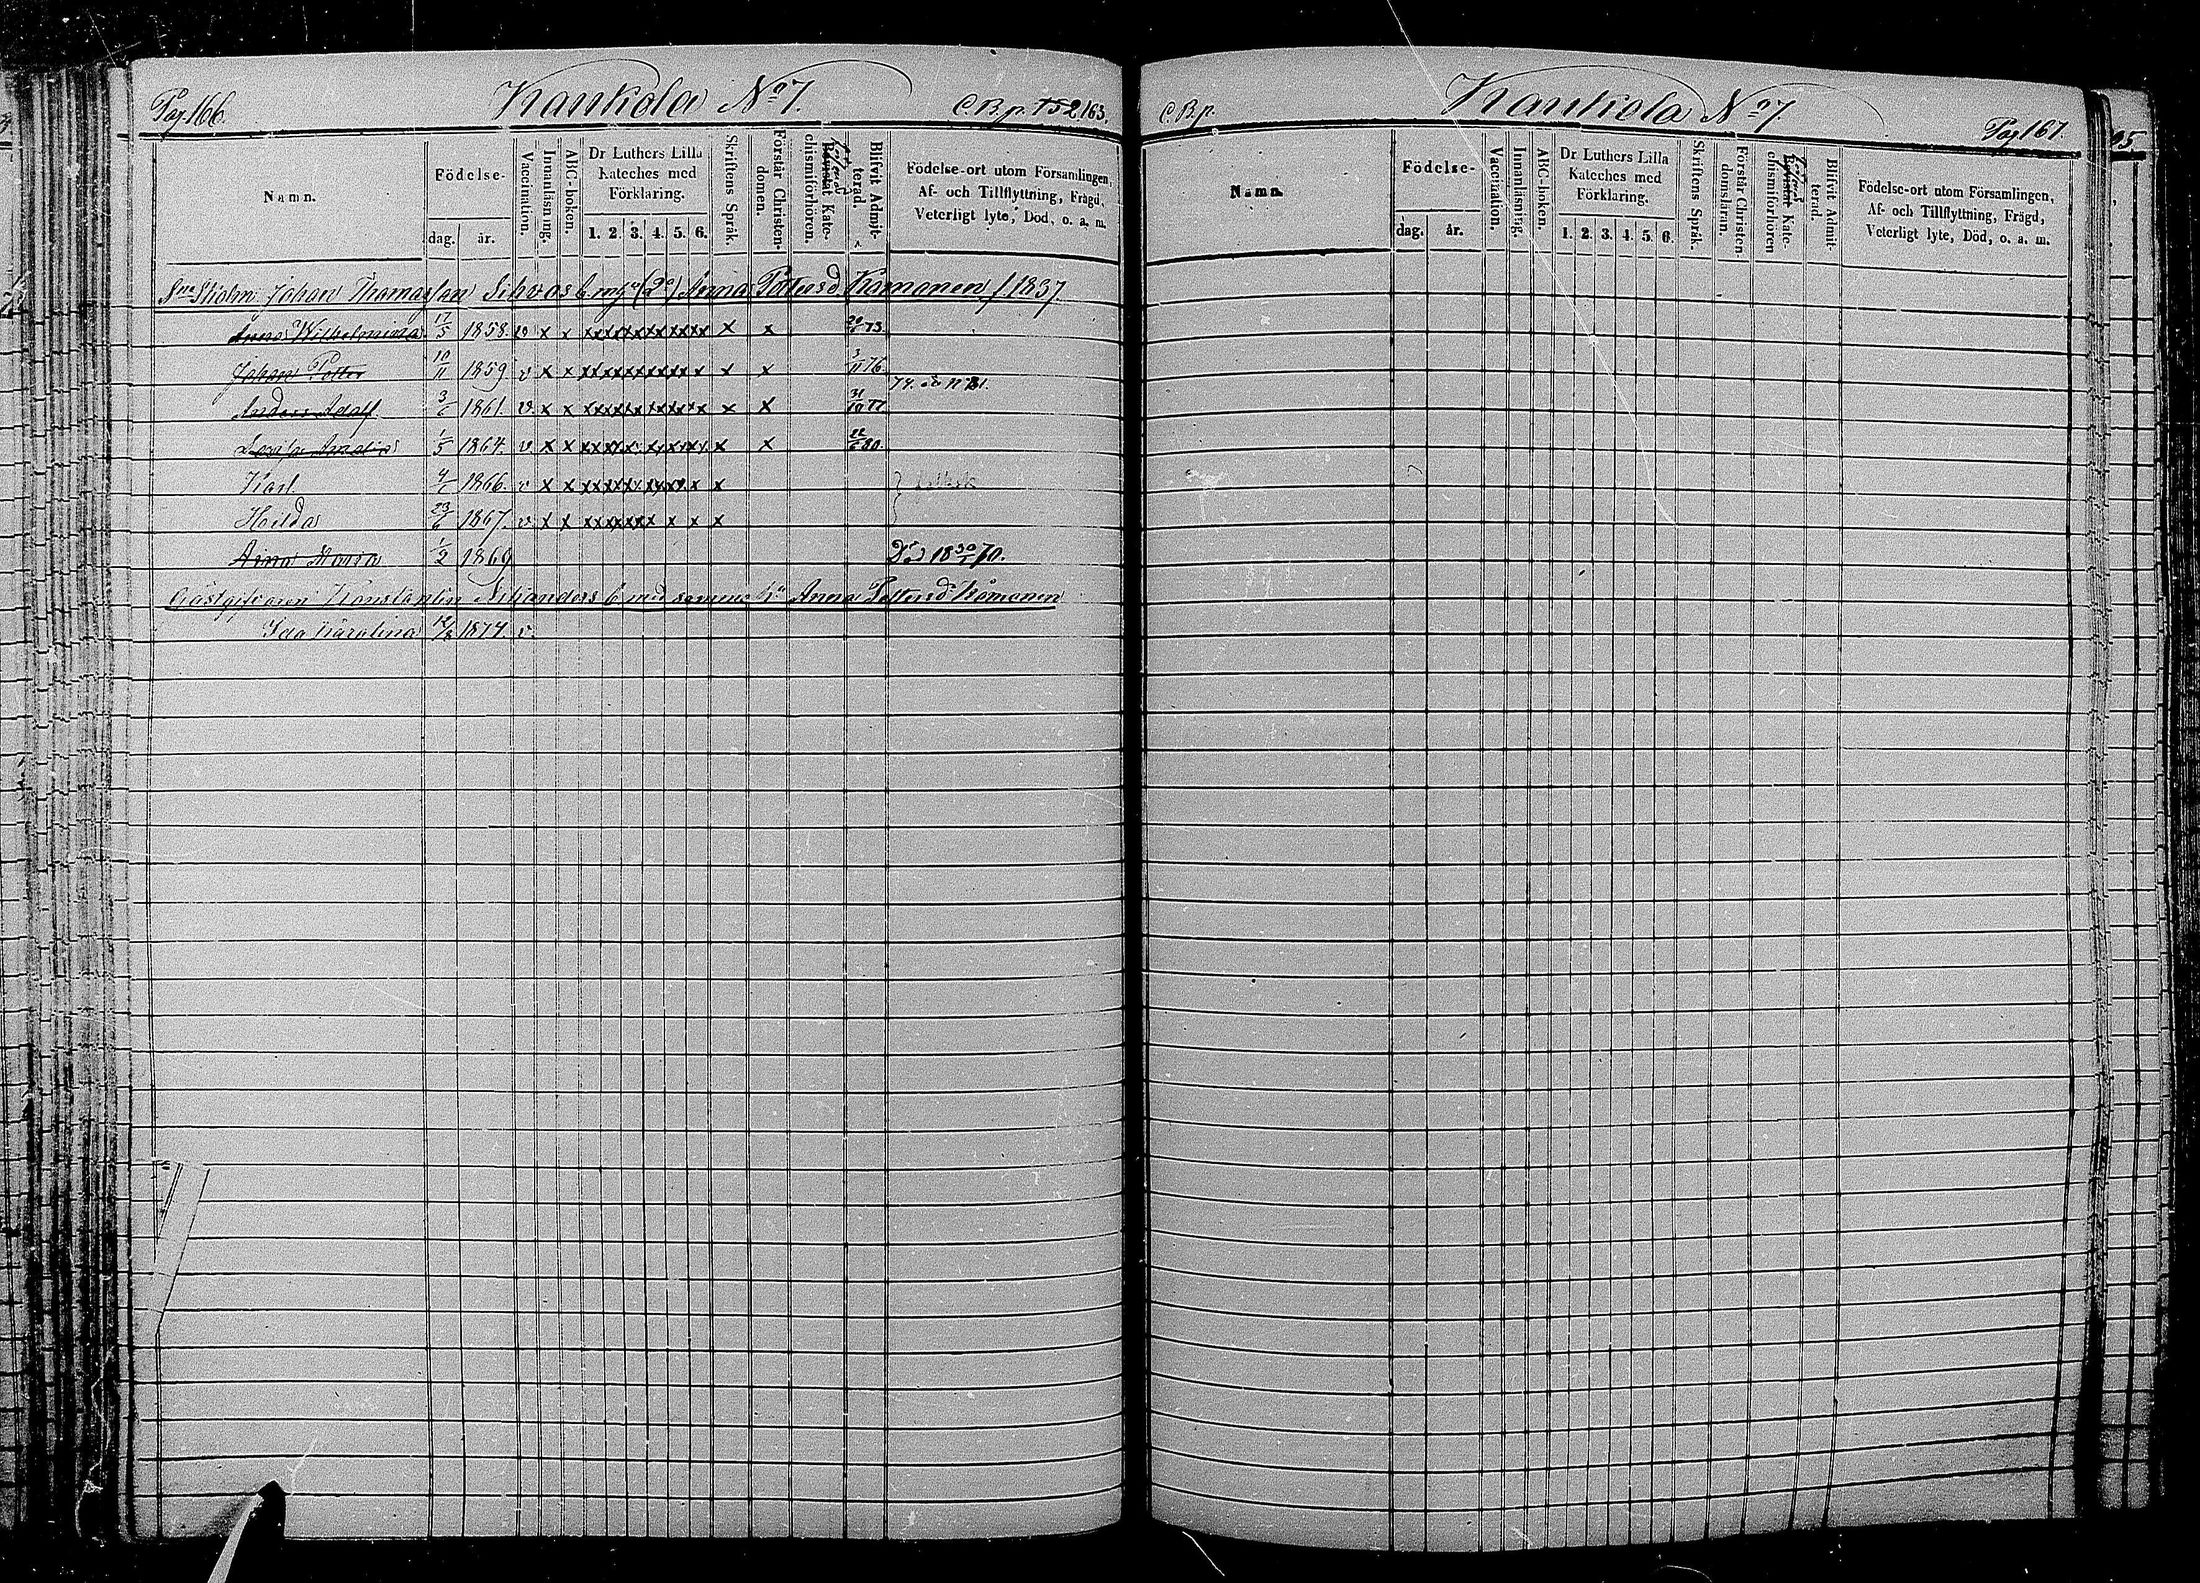 Pag 166.
Kankola No 7.
C.B.p. 152 163.
Namn.
Födelse-
dag. år.
Vaccination.
Innanläsning.
ABC-boken.
Dr Luthers Lilla
Kateches med
Förklaring.
1. 2. 3. 4. 5. 6.
Skriftens Språk.
Förstår Christen-
domen.
Bevistat Kate-
chismiförhören.
Blifvit Admit-
terad.
Födelse-ort utom Församlingen,
Af- och Tillflyttning, Frägd,
Veterligt lyte, Död, o. a. m.
Johan Thomasson Sihvos b m h:u (2o) Anna Pettersd. Komonen f. 1837
Anna Wilhelmina 17/5 1858. v x x x x x x x x x x x x x x x x
Johan Petter 10/11 1859 v x x x x x x x x x x x x x x x 3/11 76
Anders Adolf 3/6 1861. v. x x x x x x x x x x x x x x x 31/10 77
1/5 1864. v x x x x x x x x x x x x x x x 80
Karl 1866. v x x x x x x x x x x x x x
Hilda 23/6 1867. v x x x x x x x x x x x x
Maria 1/2 1869 Död 18 30/ 70.
Gästgifvaren Konstantin b med samma h:u Anna Pettersd Komonen
Ida Karolina 1874. v.
C.B.p.
Kankola No 7.
Pag 167.
Namn.
Födelse-
dag. år.
Vaccination.
Innanläsning.
ABC-boken.
Dr Luthers Lilla
Kateches med
Förklaring.
1. 2. 3. 4. 5. 6.
Skriftens Språk.
Förstår Christen-
domsläran.
Bevistat Kate-
chismiförhören
Blifvit Admit-
terad.
Födelse-ort utom Församlingen,
Af- och Tillflyttning, Frägd,
Veterligt lyte, Död, o. a. m.